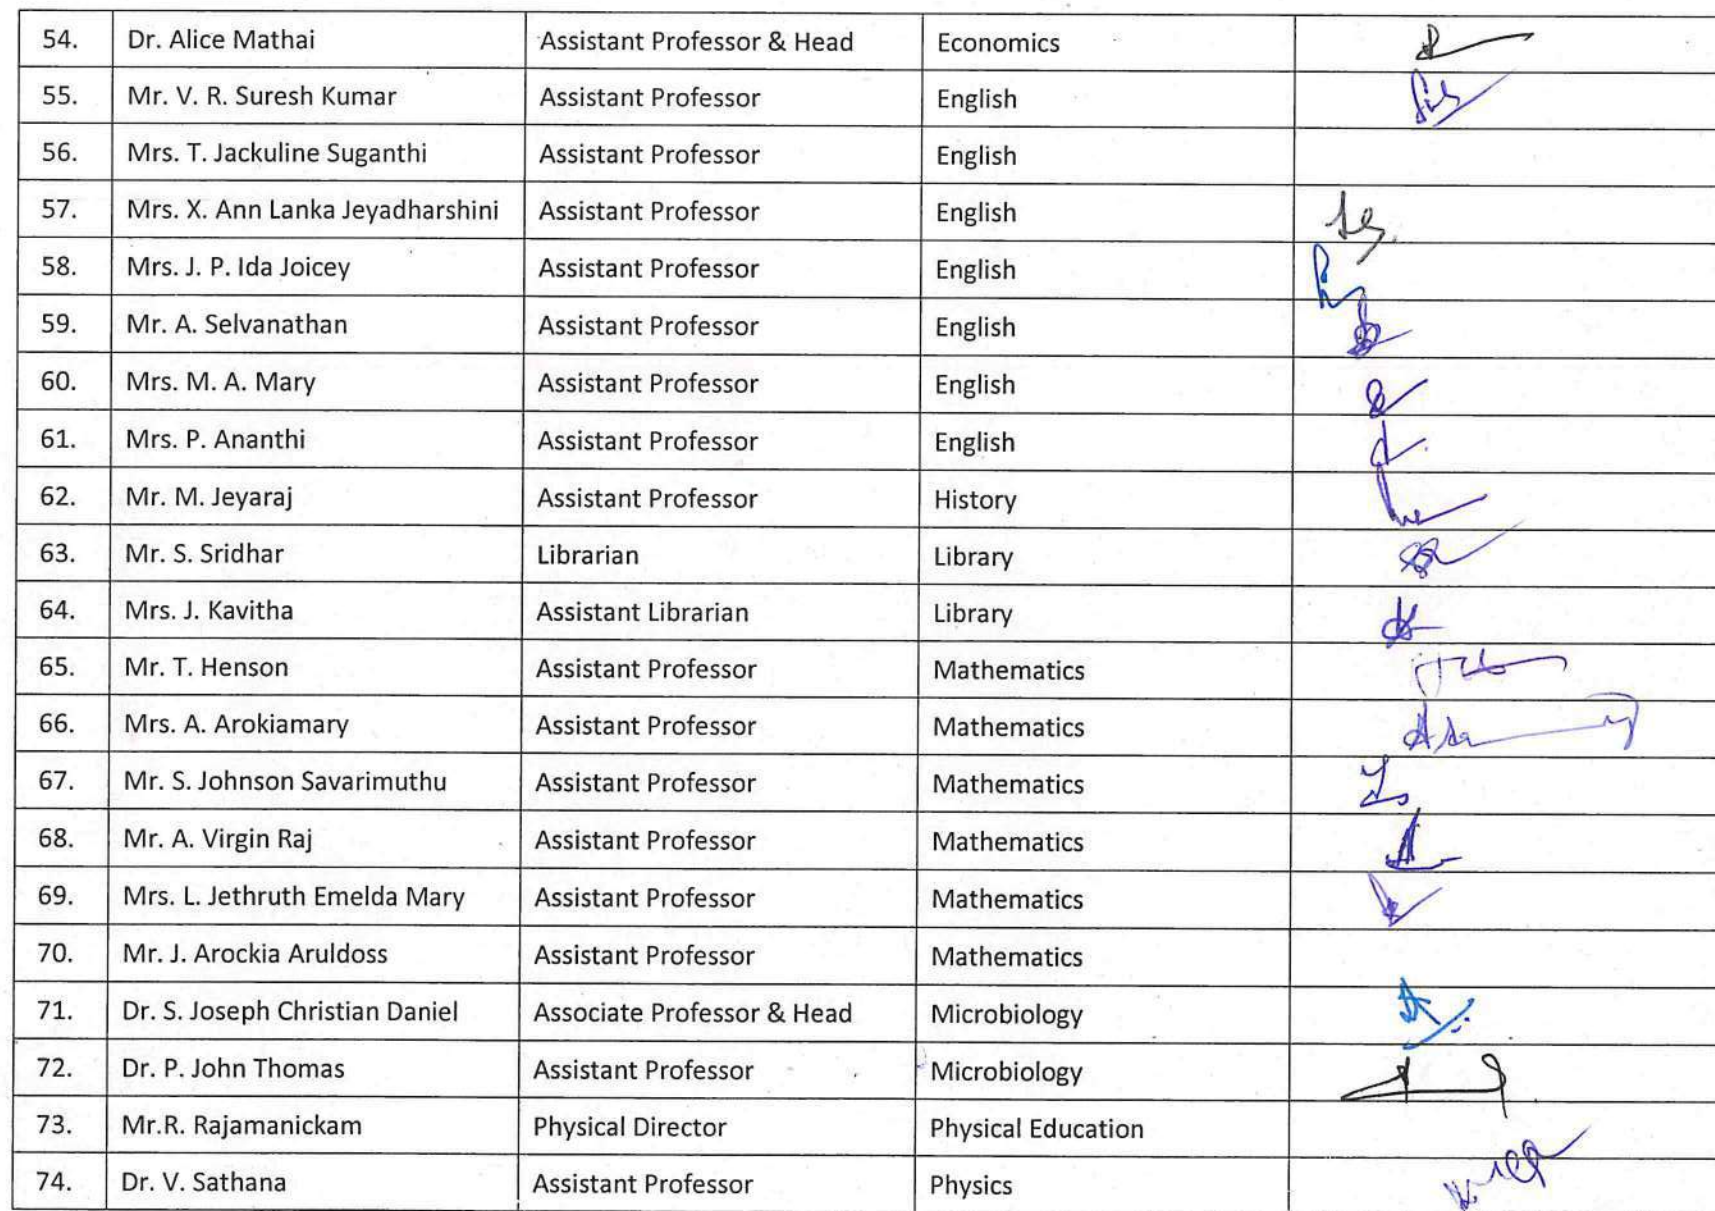 54. Dr. Alice Mathai Assistant Professor & Head Economics
55. Mr. V. R. Suresh Kumar Assistant Professor English
56. Mrs. T. Jackuline Suganthi Assistant Professor English
57. Mrs. X. Ann Lanka Jeyadharshini Assistant Professor English
58. Mrs. J. P. Ida Joicey Assistant Professor English
59. Mr. A. Selvanathan Assistant Professor English
60. Mrs. M. A. Mary Assistant Professor English
61. Mrs. P. Ananthi Assistant Professor English
62. Mr. M. Jeyaraj Assistant Professor History
63. Mr. S. Sridhar Librarian Library
64. Mrs. J. Kavitha Assistant Librarian Library
65. Mr. T. Henson Assistant Professor Mathematics
66. Mrs. A. Arokiamary Assistant Professor Mathematics
67. Mr. S. Johnson Savarimuthu Assistant Professor Mathematics
68. Mr. A. Virgin Raj Assistant Professor Mathematics
69. Mrs. L. Jethruth Emelda Mary Assistant Professor Mathematics
70. Mr. J. Arockia Aruldoss Assistant Professor Mathematics
71. Dr. S. Joseph Christian Daniel Associate Professor & Head Microbiology
72. Dr. P. John Thomas Assistant Professor Microbiology
73. Mr.R. Rajamanickam Physical Director Physical Education
74. Dr. V. Sathana Assistant Professor Physics